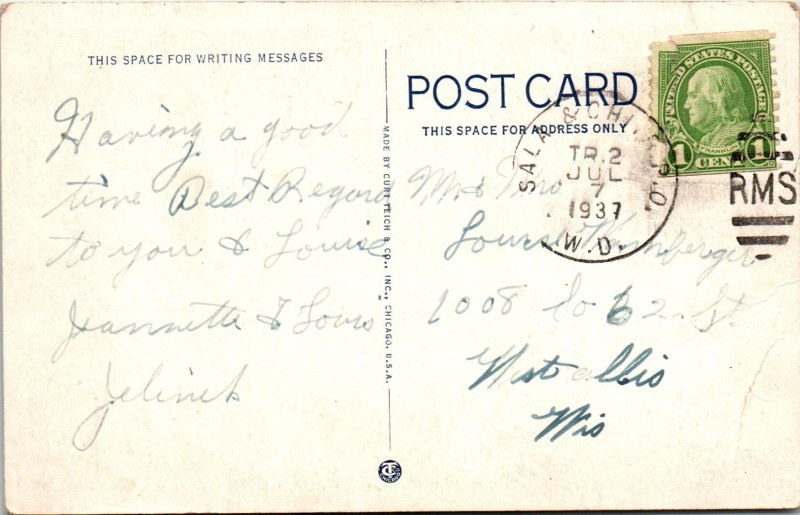 THIS SPACE FOR WRITING MESSAGES
Having a good
time Best Regard
to you & Louise
Jeannette & Louis
Jelinek
MADE BY CURT TEICH & CO., INC., CHICAGO, U.S.A.
POST CARD
THIS SPACE FOR ADDRESS ONLY
UNITED STATES POSTAGE
FRANKLIN
1 CENT 1
TR. 2
JUL
7
1937
W.D.
RMS
Mr &
Louise
1008 So 62. St
West allis
Wis